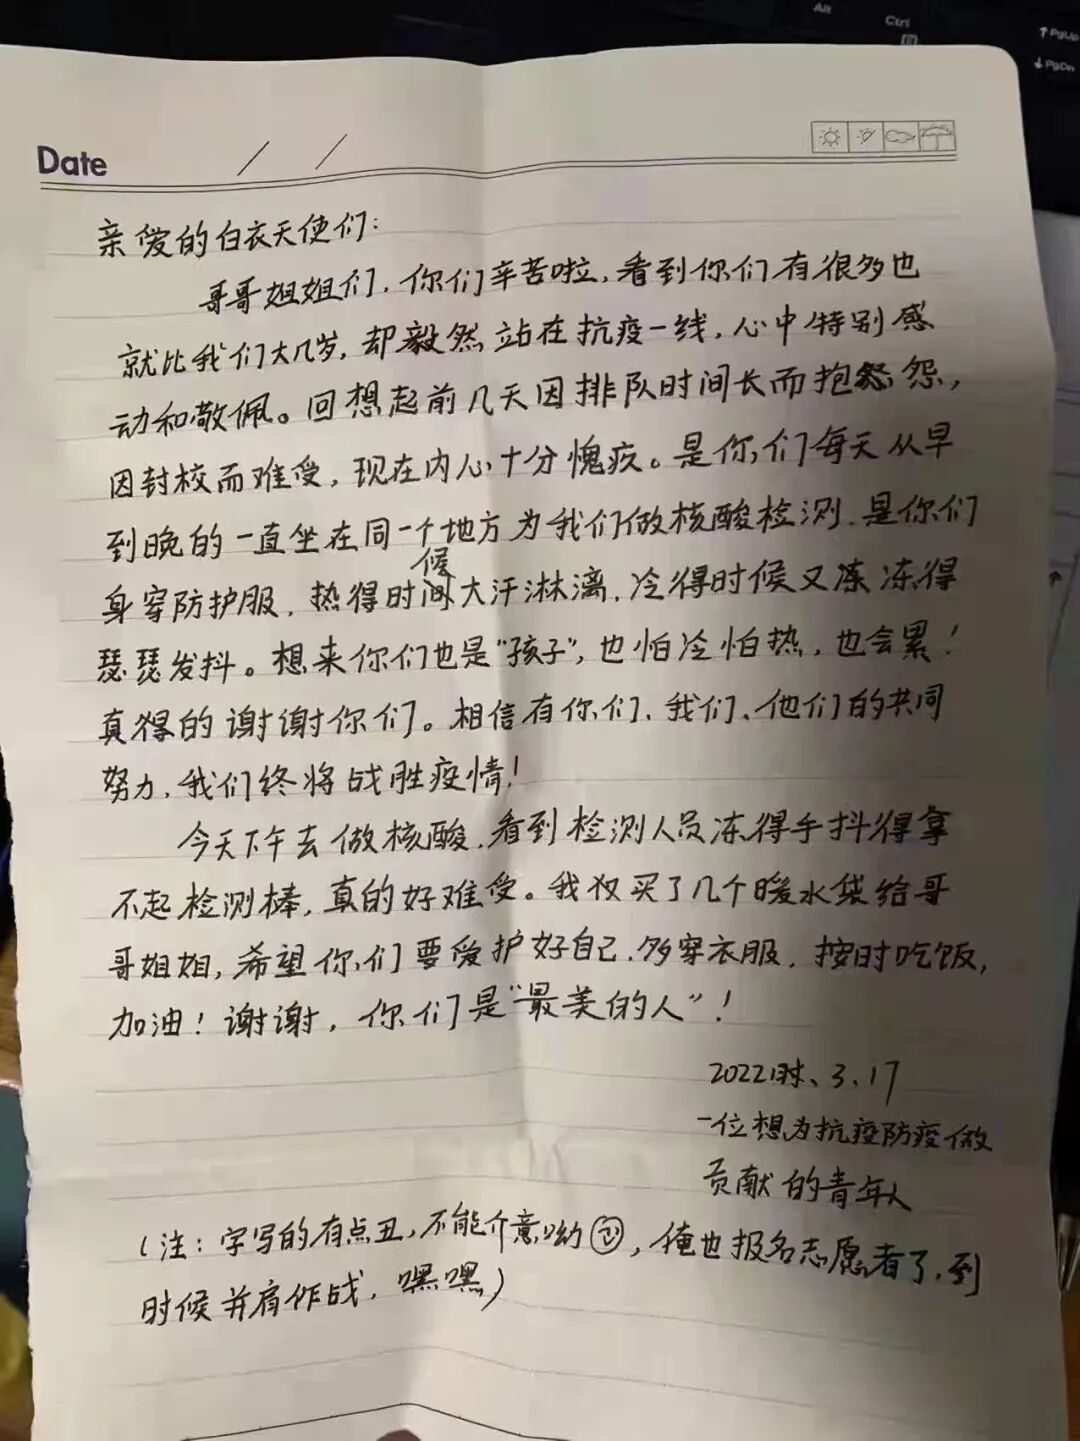 Alt
Ctrl
↑PgUp
↓PgDn
Date / /
亲爱的白衣天使们:
哥哥姐姐们，你们辛苦啦，看到你们有很多也
就比我们大几岁，却毅然站在抗疫一线，心中特别感
动和敬佩。回想起前几天因排队时间长而抱怨，
因封校而难受，现在内心十分愧疚。是你们每天从早
到晚的一直坐在同一个地方为我们做核酸检测，是你们
身穿防护服，热得时候大汗淋漓，冷得时候又冻得
瑟瑟发抖。想来你们也是"孩子"，也怕冷怕热，也会累！
真得的谢谢你们。相信有你们、我们、他们的共同
努力，我们终将战胜疫情！
今天下午去做核酸，看到检测人员冻得手抖得拿
不起检测棒，真的好难受。我仅买了几个暖水袋给哥
哥姐姐，希望你们要爱护好自己，多穿衣服，按时吃饭，
加油！谢谢，你们是"最美的人"！
2022、3.17
一位想为抗疫防疫做
贡献的青年人
(注：字写的有点丑，不能介意呦，俺也报名志愿者了，到
时候并肩作战，嘿嘿)